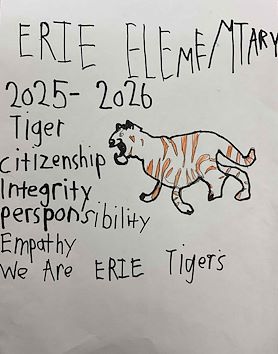 ERIE ELEMENTARY
2025-2026
Tiger
citizenship
Integrity
persponsibility
Empathy
We Are ERIE Tigers